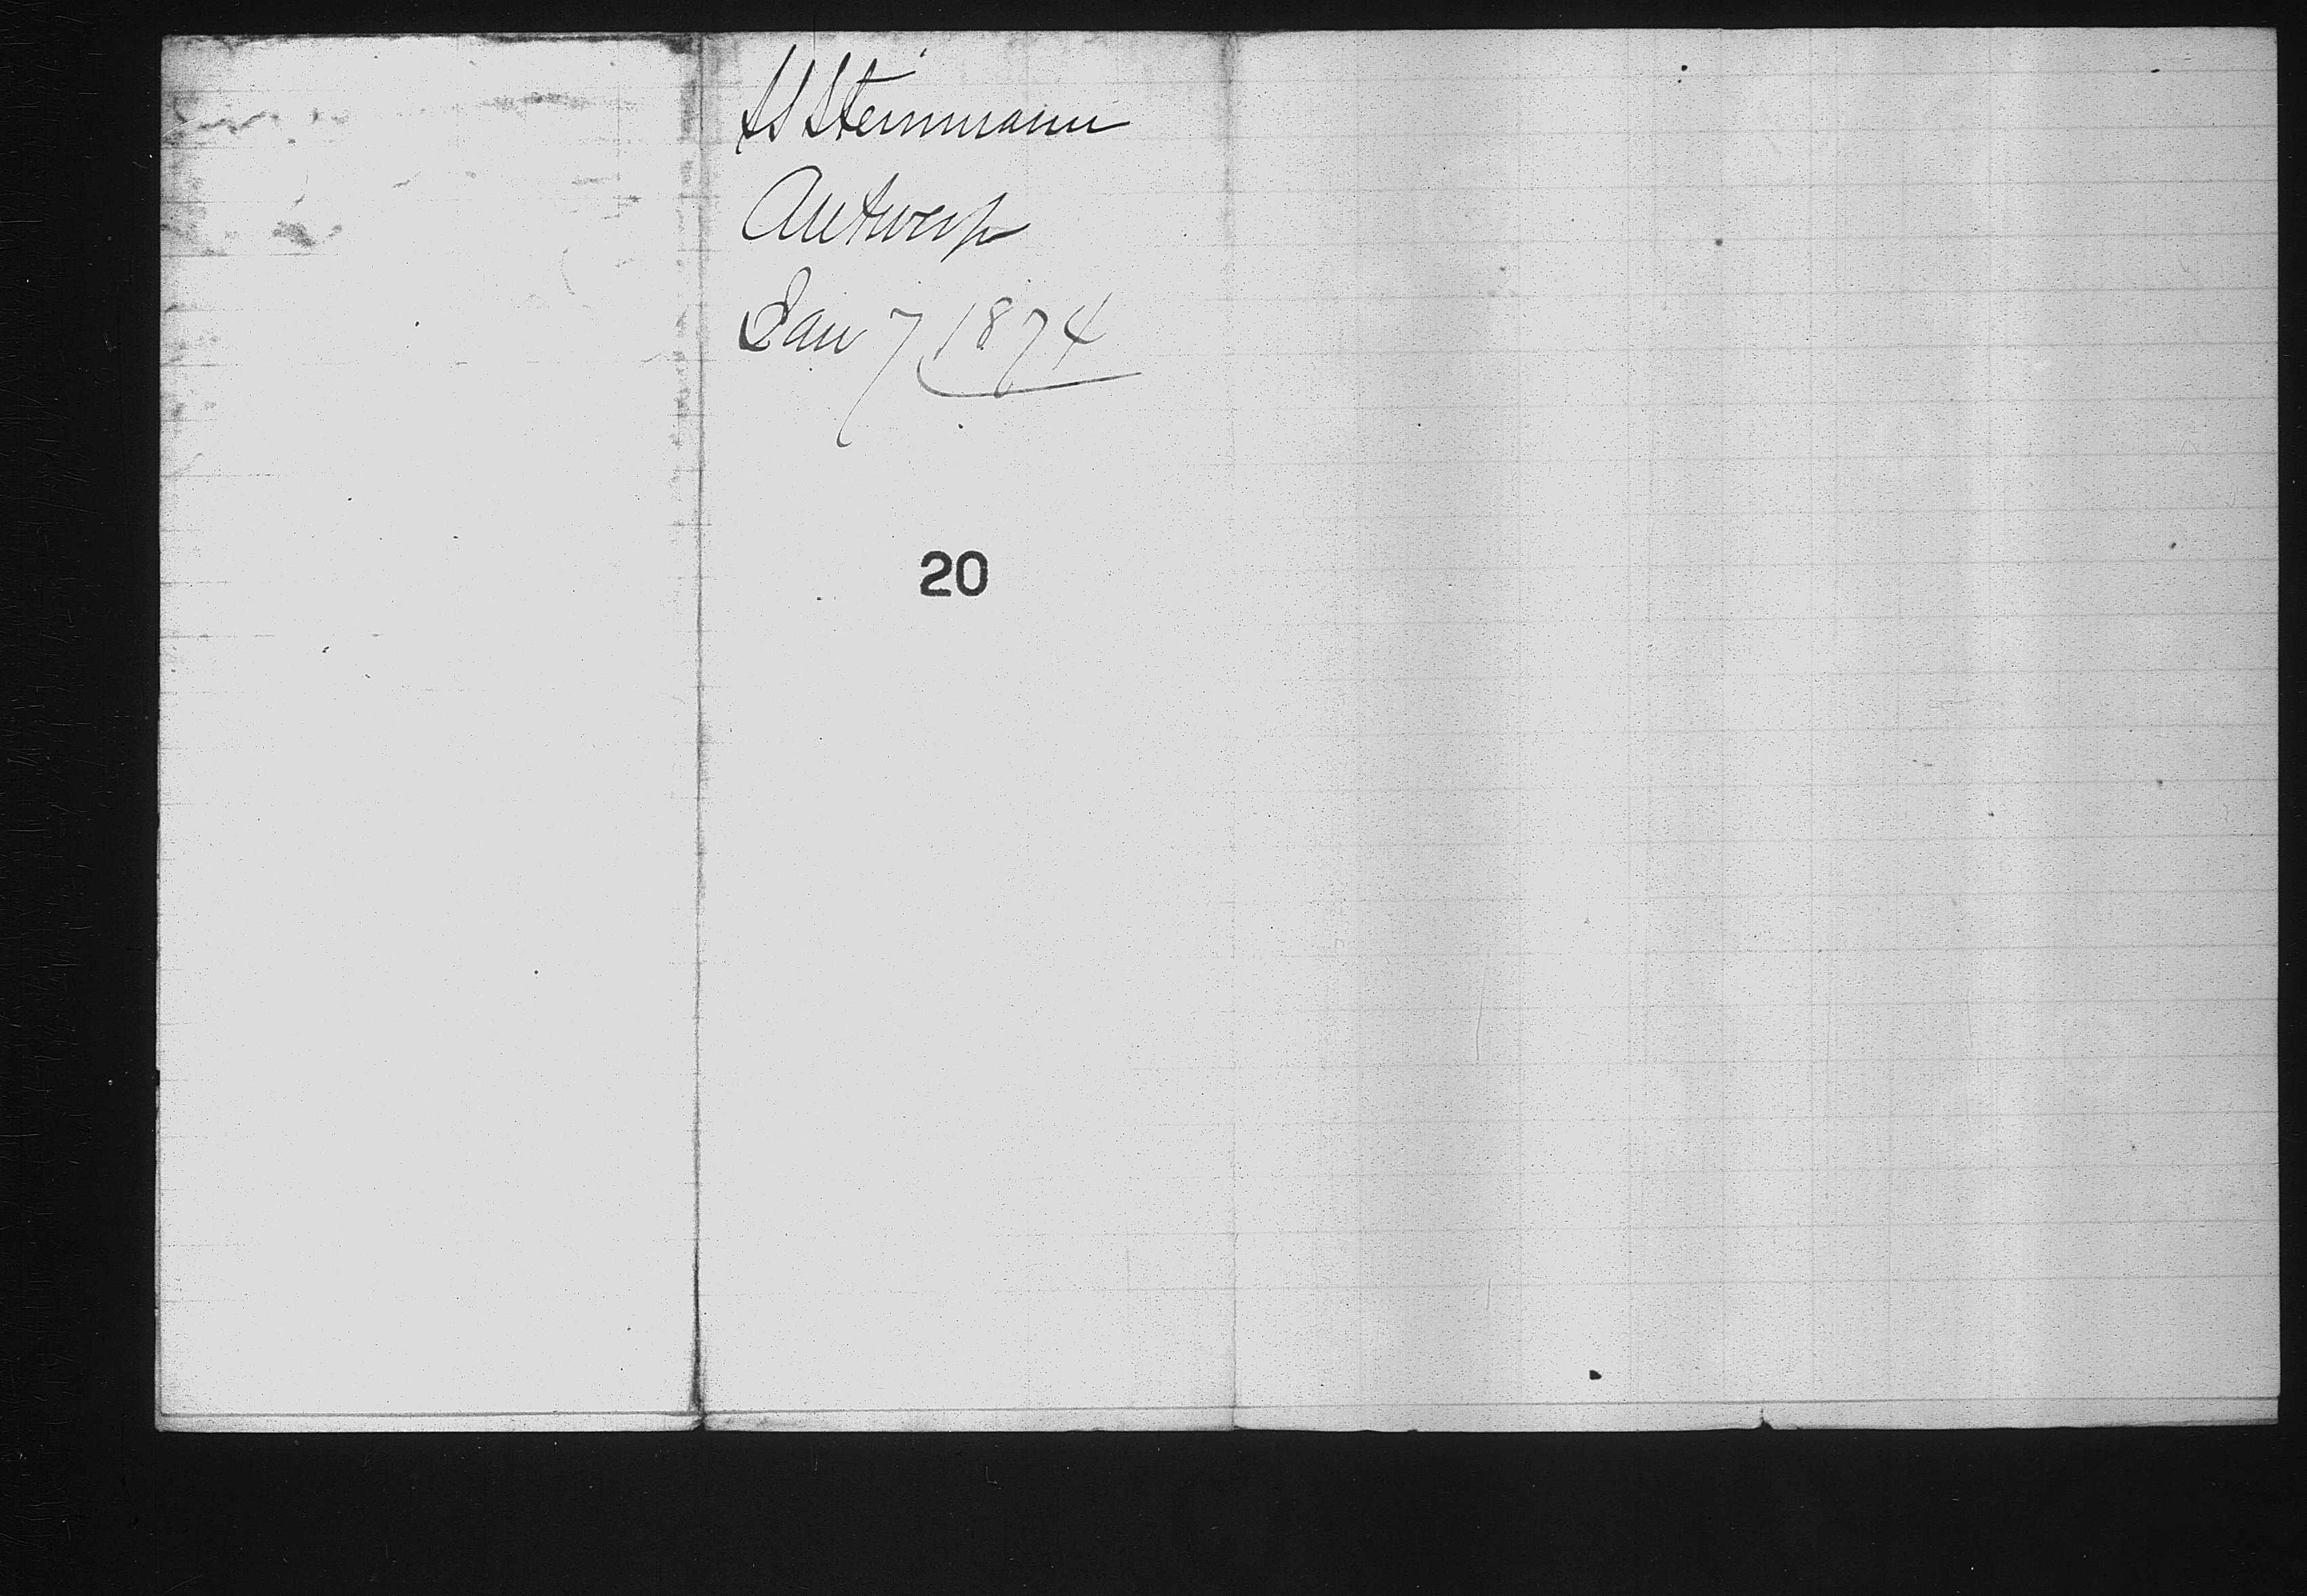 SS Steinmann
Antwerp
Jan 7 1874
20